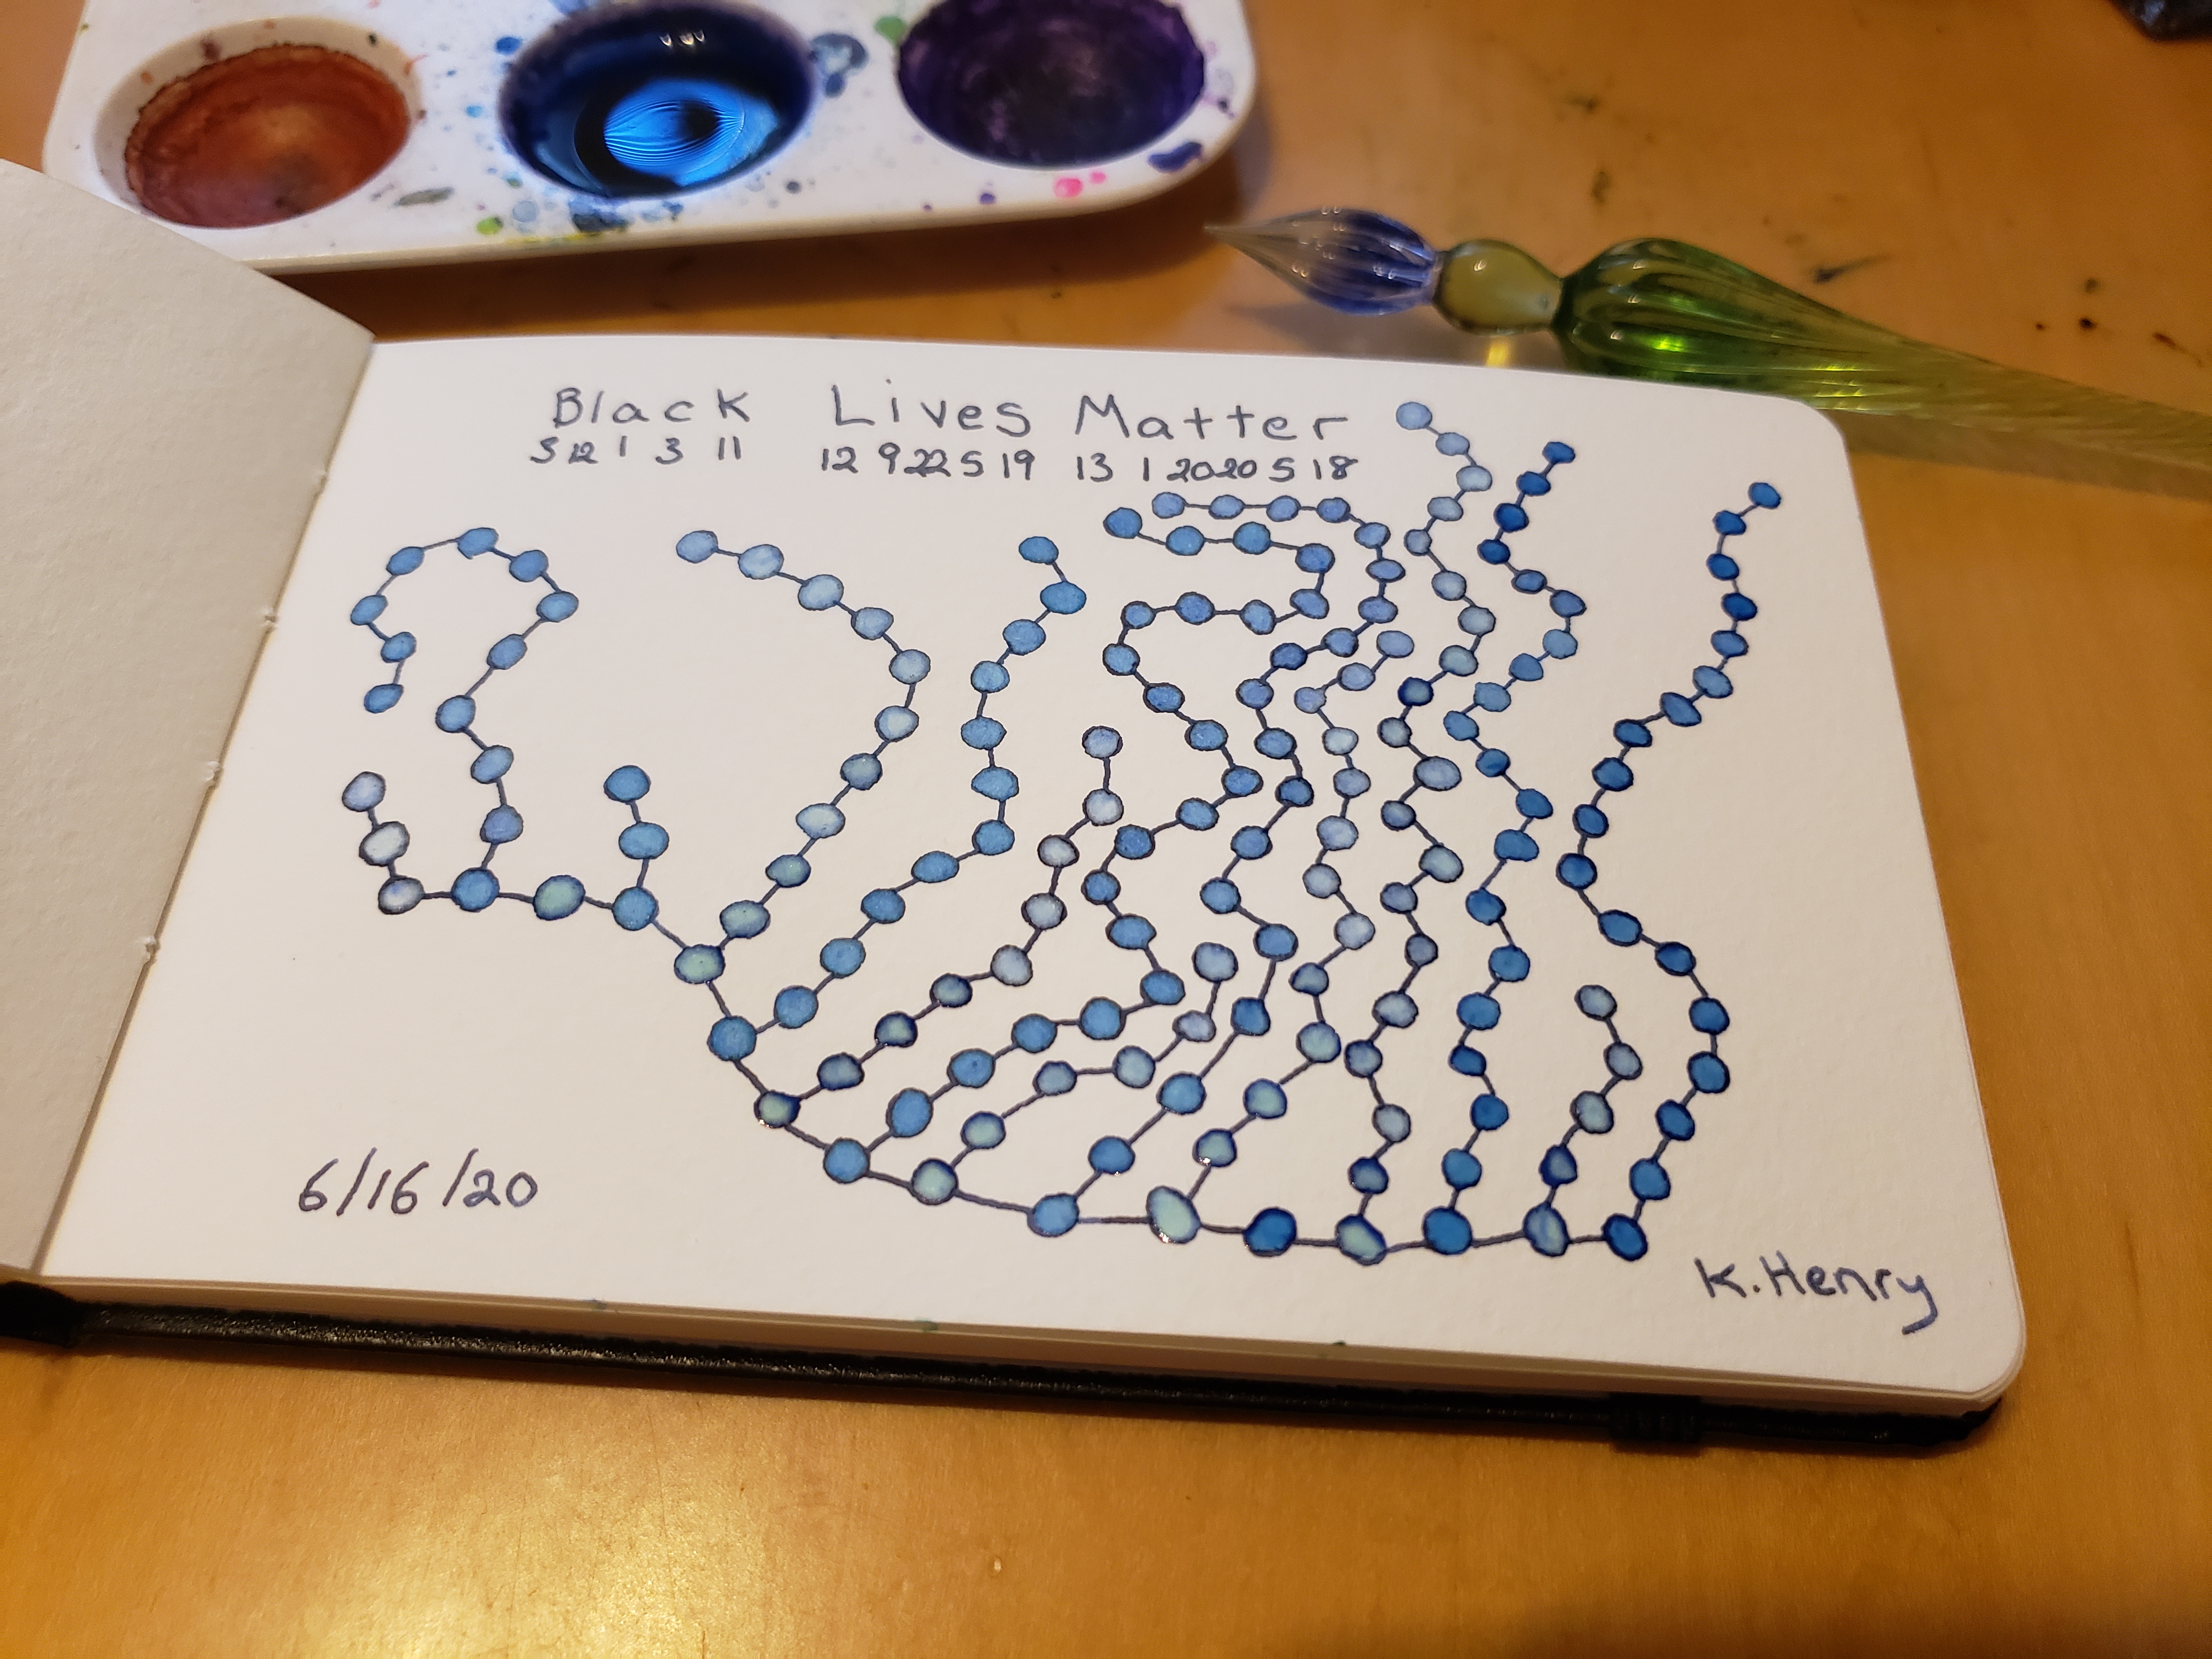 Black Lives Matter
3 12 1 3 11 12 9 22 5 19 13 1 20 20 5 18
6/16/20
K. Henry